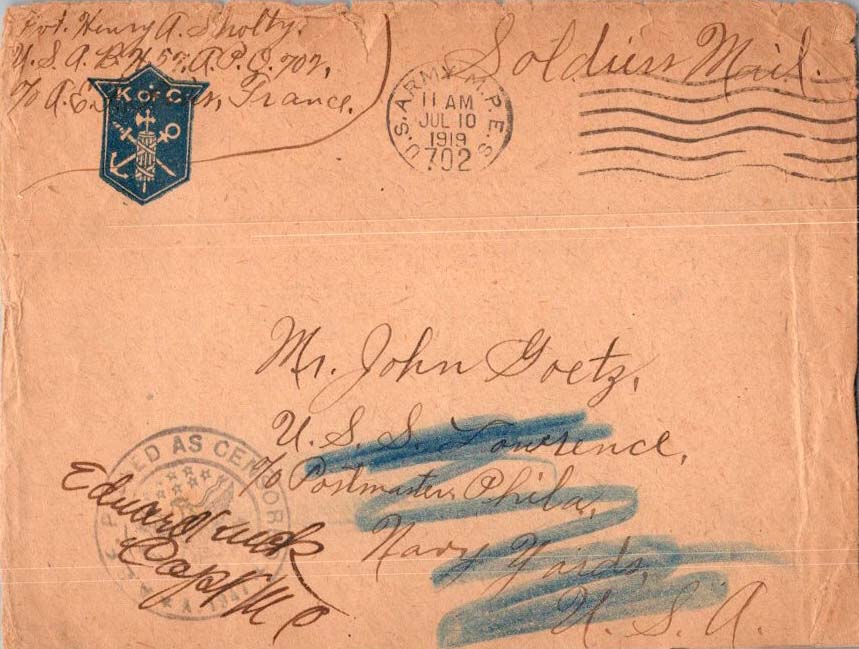 Pvt. Henry A. Sholty.
U.S.A. B.H 55, A.P.O. 702,
c/o A.E.F. France.
K of C
U.S. ARMY M.P.E.S.
11 AM
JUL 10
1919
702
Soldiers Mail.
Mr. John Goetz,
U. S. S. Lawrence,
c/o Postmaster, Phila,
Navy Yards,
U. S. A.
PASSED AS CENSORED
Edward
Capt M C